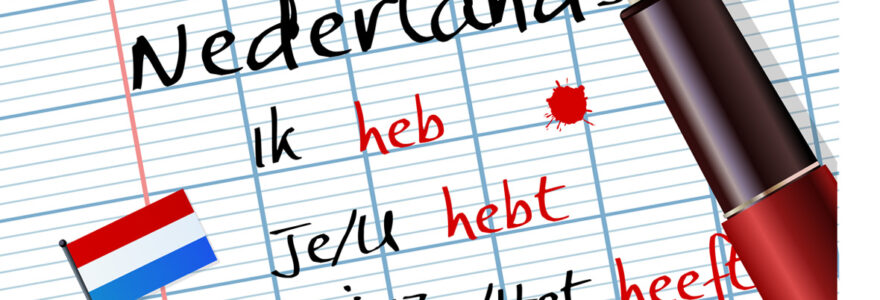 Nederlands
Ik heb
Je/U hebt
heeft